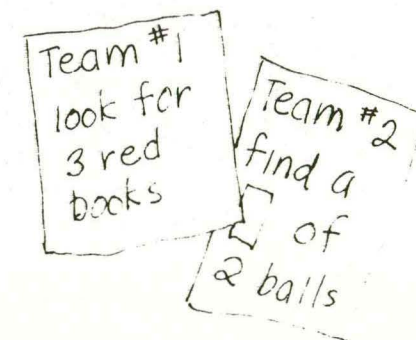 Team #1
look for
3 red
books
Team #2
find a
of
2 balls